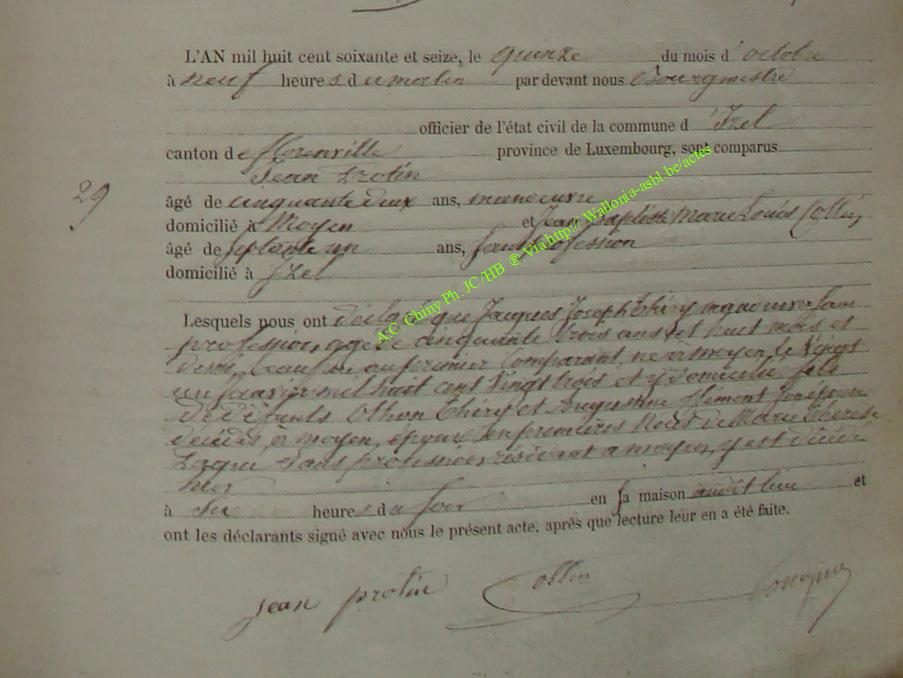 L'AN mil huit cent soixante et seize, le quinze du mois d'octobre
à neuf heures du matin par devant nous Bourgmestre
officier de l'état civil de la commune d'Izel
canton de florenville province de Luxembourg, sont comparus
Jean Protin
29
âgé de cinquante deux ans, manoeuvre
domicilié à Moyen et Jean Baptiste Marie Louis Collin
âgé de septante un ans, sans profession
domicilié à Izel
Lesquels nous ont déclaré que Jacques Joseph Thiry manoeuvre sans
profession, agé de cinquante trois ans et huit mois et
demi, beau au premier comparant, né à moyen le vingt
un mil huit cent vingt trois et y domicilié fils
de défunts Othon Thiry et Augustine Clément
décédés à moyen, époux en premières Noces de Marie Thérèse
sans profession, résidant à moyen, y est décédé
hier
à heures du soir en sa maison audit lieu et
ont les déclarants signé avec nous le présent acte, après que lecture leur en a été faite.
jean protin Collin
A.C. Chiny Ph. JC /HB @ Via http:// Wallonia-asbl.be/actes